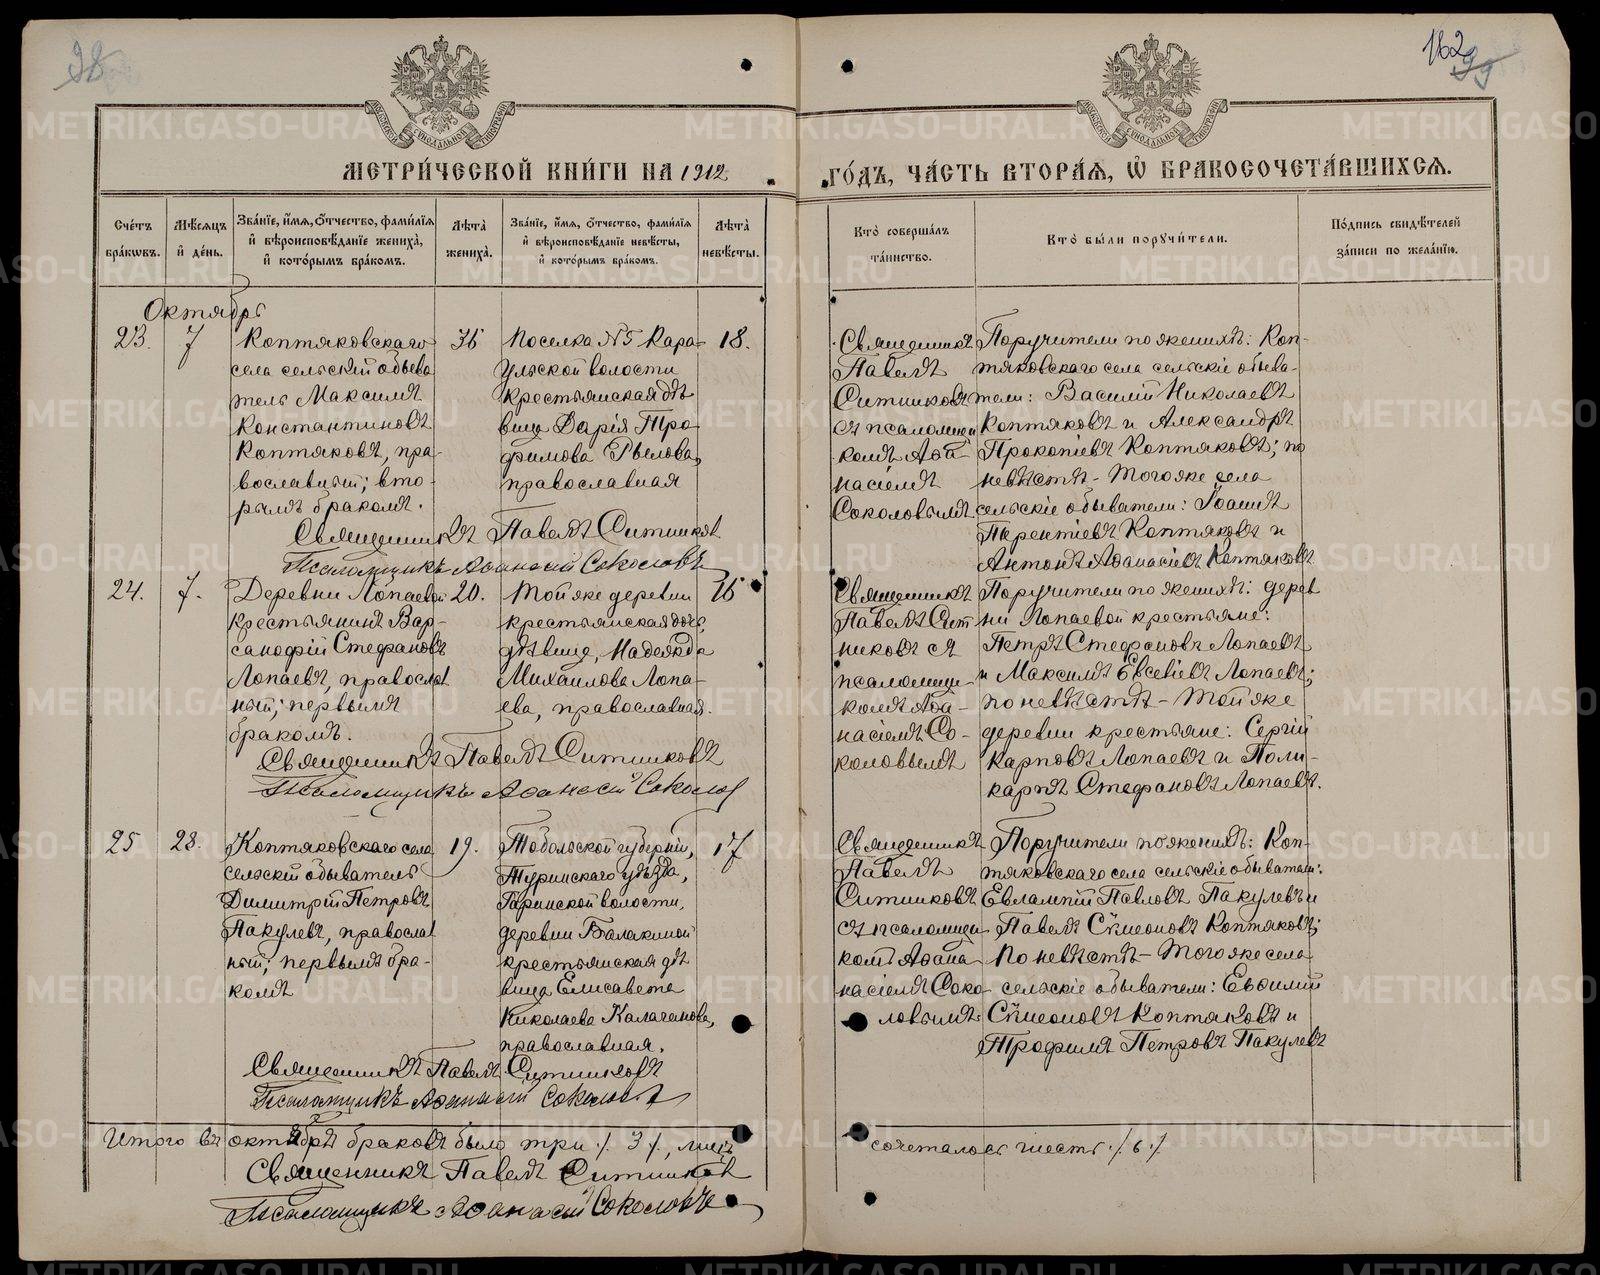 98
162
99
МЕТРИ́ЧЕСКОЙ КНИ́ГИ НА 1912
ГО́ДЪ, ЧА́СТЬ ВТОРА́Я, Ѡ҆ БРАКОСОЧЕТА́ВШИХСЯ.
Сче́тъ бра́ковъ.
Мѣ́сяцъ и҆ де́нь.
Зва́нїе, и҆́мя, ѻ҆́тчество, фами́лїя
и҆ вѣроисповѣ́данїе жениха̀,
и҆ кото́рымъ бра́комъ.
Лѣ́та̀ жениха̀.
Зва́нїе, и҆́мя, ѻ҆́тчество, фами́лїя
и҆ вѣроисповѣ́данїе невѣ́сты,
и҆ кото́рымъ бра́комъ.
Лѣ́та̀ невѣ́сты.
Кто̀ соверша́лъ
та́инство.
Кто̀ бы́ли поручи́тели.
По́дпись свидѣ́телей
за́писи по жела́нїю.
Октябрь
23.
7
Коптяковскаго
села сельскій обыва
тель Максимъ
Константиновъ
Коптяковъ, пра-
вославный; вто-
рымъ бракомъ.
36
Поселка №5 Кара-
ульской волости
крестьянская дѣ
вица Дарія Тро
фимова Рылова,
православная
18.
Священникъ
Павелъ
Ситниковъ
съ псаломщи
комъ Аѳа-
насіемъ
Соколовымъ
Поручители по женихѣ: Коп-
тяковскаго села сельскіе обыва-
тели: Василій Николаевъ
Коптяковъ и Александръ
Прокопіевъ Коптяковъ; по
невѣстѣ - Того же села
сельскіе обыватели: Іоаннъ
Терентіевъ Коптяковъ и
Антонъ Аѳанасіевъ Коптяковъ
Священникъ Павелъ Ситниковъ
Псаломщикъ Аѳанасій Соколовъ
24.
7.
Деревни Лопаевой
крестьянинъ Вар-
санофій Стефановъ
Лопаевъ, православ
ный; первымъ
бракомъ.
20.
Той же деревни
крестьянская дочь,
дѣвица, Надежда
Михаилова Лопа-
ева, православная.
16
Священникъ
Павелъ Сит
никовъ съ
псаломщи-
комъ Аѳа-
насіемъ Со-
коловымъ
Поручители по женихѣ: дерев
ни Лопаевой крестьяне:
Петръ Стефановъ Лопаевъ
и Максимъ Евсевіевъ Лопаевъ;
по невѣстѣ - Той же
деревни крестьяне: Сергій
Карповъ Лопаевъ и Поли-
карпъ Стефановъ Лопаевъ.
Священникъ Павелъ Ситниковъ
Псаломщикъ Аѳанасій Соколов
25
28.
Коптяковскаго села
сельскій обыватель
Димитрій Петровъ
Пакулевъ, православ
ный; первымъ бра-
комъ
19.
Тобольской губерніи,
Туринскаго уѣзда,
Гаринской волости,
деревни Балакиной
крестьянская дѣ
вица Елисавета
Николаева Калаганова,
православная.
17
Священникъ
Павелъ
Ситниковъ
съ псаломщи
комъ Аѳана
насіемъ Соко
ловымъ.
Поручители по женихѣ: Коп-
тяковскаго села сельскіе обыватели:
Евлампій Павловъ Пакулевъ и
Павелъ Сѵмеоновъ Коптяковъ;
По невѣстѣ - Того же села
сельскіе обыватели: Евѳимій
Сѵмеоновъ Коптяковъ и
Трофимъ Петровъ Пакулевъ
Священникъ Павелъ Ситниковъ
Псаломщикъ Аѳанасій Соколовъ
Итого въ октябрѣ браковъ было три ./. 3 ./., лицъ
сочеталось шесть ./. 6 ./.
Священникъ Павелъ Ситниковъ
Псаломщикъ Аѳанасій Соколовъ